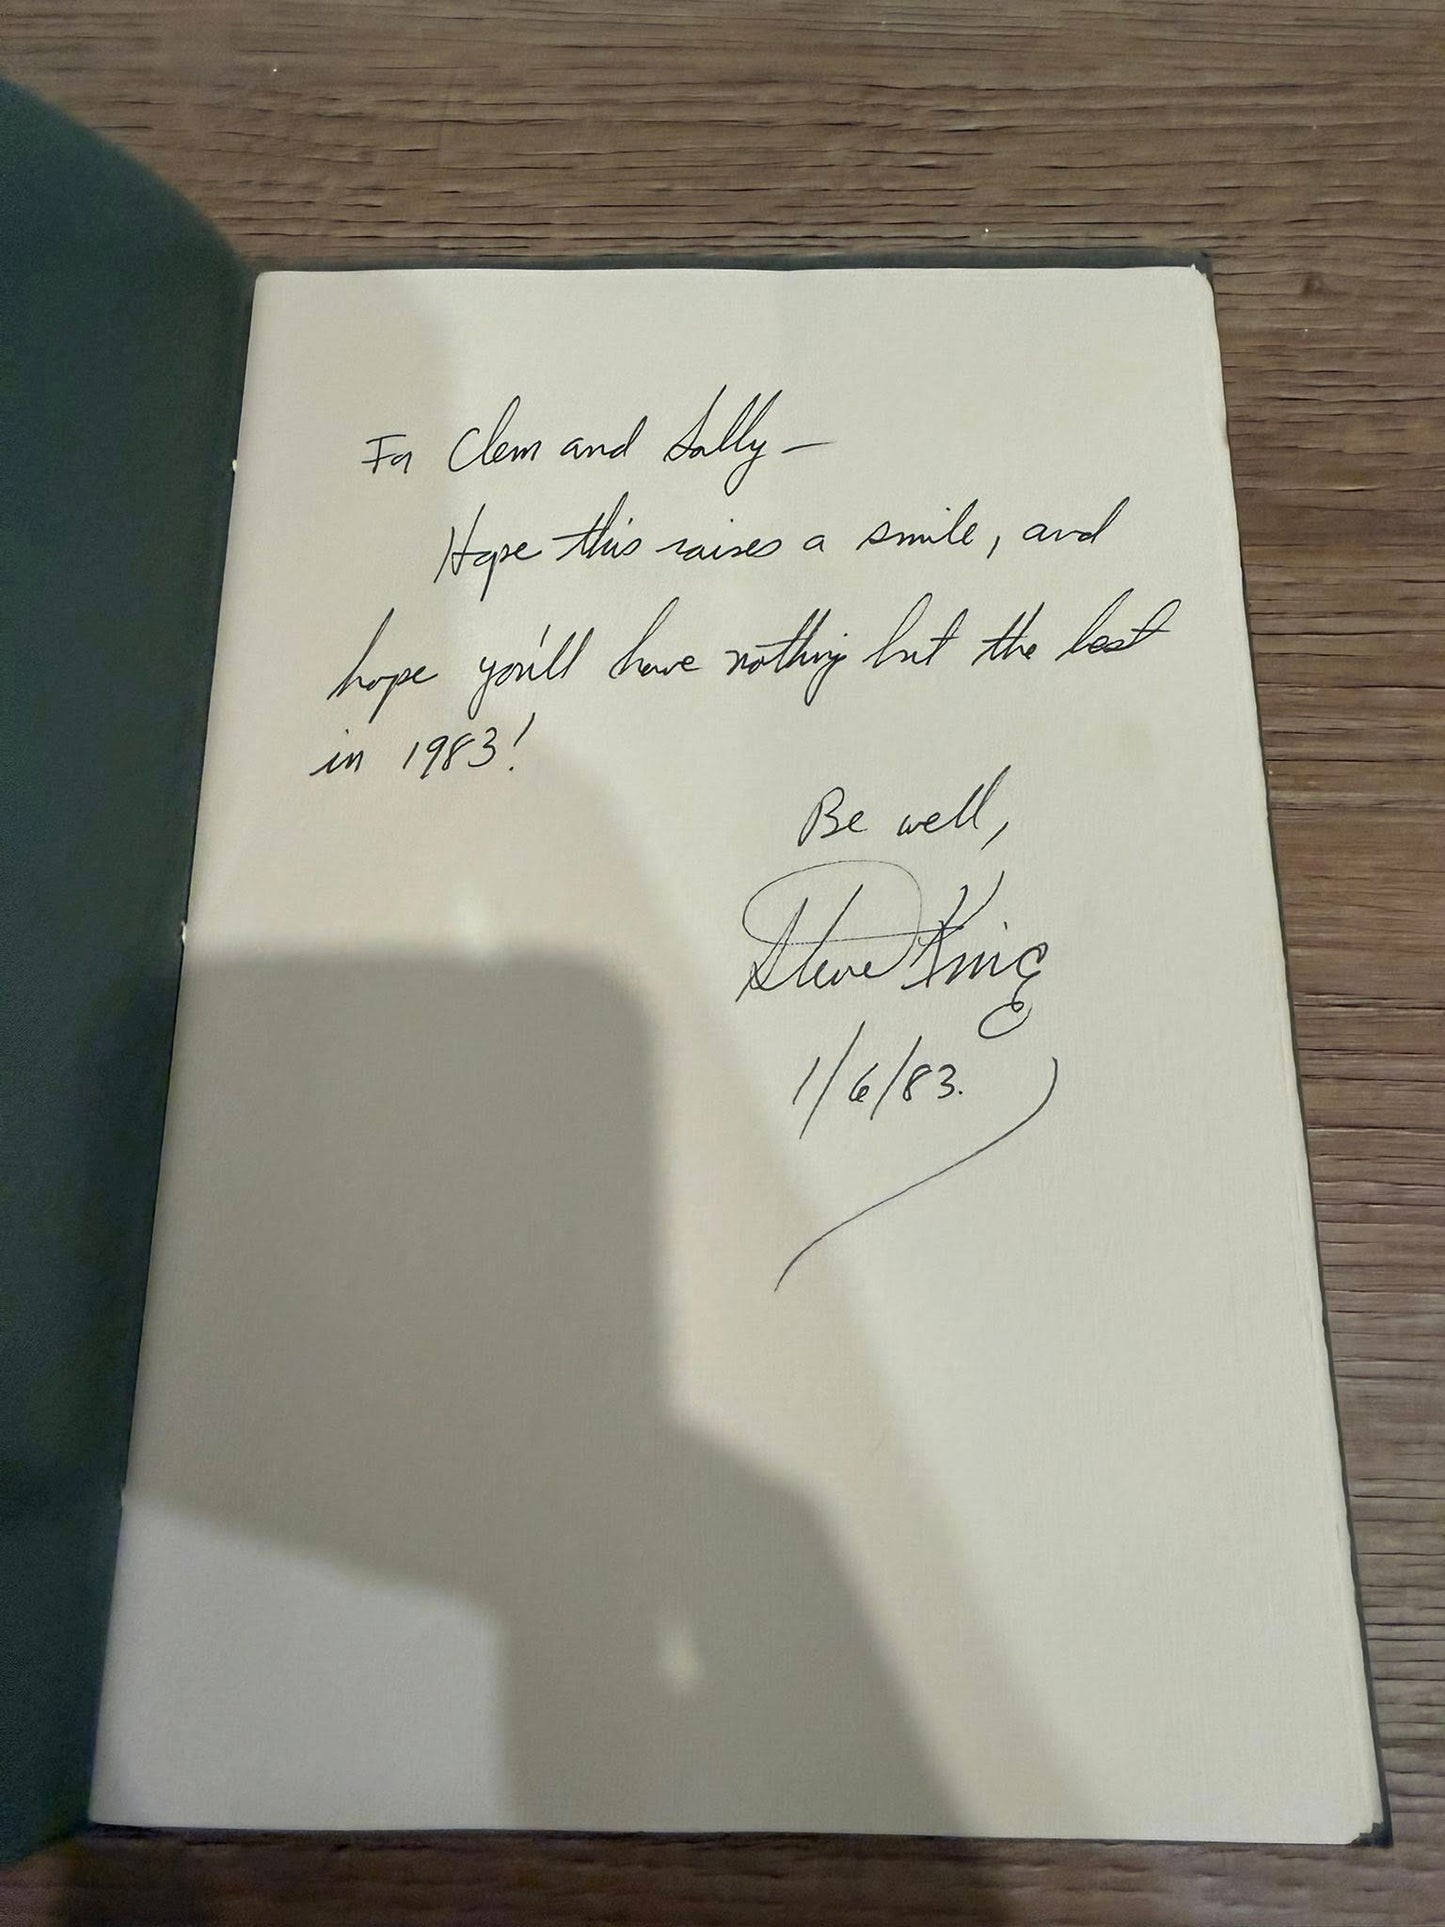 For Clem and Sally—
Hope this raises a smile, and
hope you'll have nothing but the best
in 1983!
Be well,
Steve King
1/6/83.